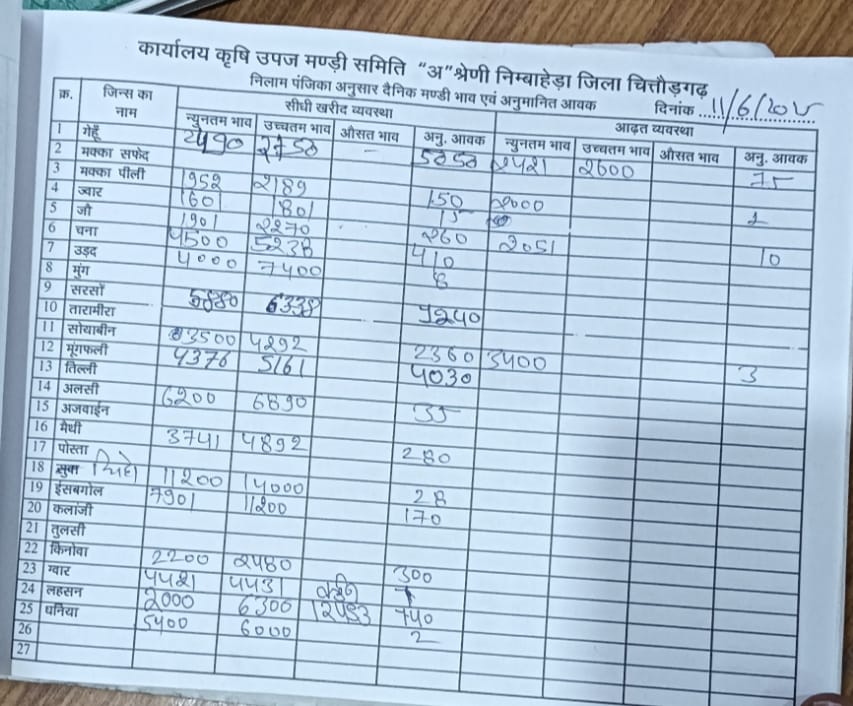 कार्यालय कृषि उपज मण्ड़ी समिति "अ"श्रेणी निम्बाहेड़ा जिला चित्तौड़गढ़
निलाम पंजिका अनुसार दैनिक मण्डी भाव एवं अनुमानित आवक दिनांक 11/6/2025
क्र. जिन्स का नाम सीधी खरीद व्यवस्था आढ़त व्यवस्था
न्युनतम भाव उच्चतम भाव औसत भाव अनु. आवक न्युनतम भाव उच्चतम भाव औसत भाव अनु. आवक
1 गेहूँ 2490 2750 — 5050 2421 2600 75
2 मक्का सफेद
3 मक्का पीली 1952 2189 150 2000 1
4 ज्वार 1601 1801 15
5 जौ 1901 2270 260 2051 10
6 चना 4500 5238 410
7 उड़द 4000 7400 8
8 मुंग
9 सरसों 5880 6338 1240
10 तारामीरा
11 सोयाबीन 3500 4292 2360 3400 3
12 मूंगफली 4376 5161 4030
13 तिल्ली
14 अलसी 6200 6890 35
15 अजवाईन
16 मैथी 3741 4892 280
17 पोस्ता
18 सुवा 11200 14000 28
19 ईसबगोल 7901 11200 170
20 कलांजी
21 तुलसी
22 किनोवा 2200 2480 300
23 ग्वार 4421 4431 7
24 लहसन 2000 6300 12453 740
25 धनिया 5400 6000 2
26
27